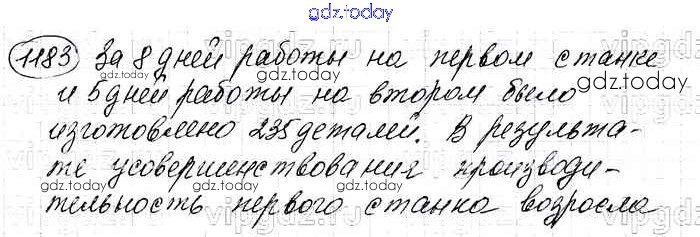 gdz.today
1183 За 8 дней работы на первом станке
gdz.today gdz.today
и 5 дней работы на втором было
изготовлено 235 деталей. В результа-
gdz.today gdz.today
те усовершенствования производи-
gdz.today
тельность первого станка возросла